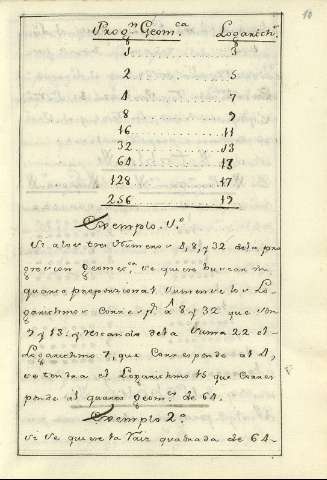 10
Progn Geom.ca Logarithm.
1 ........ 3
2 ........ 5
4 ........ 7
8 ........ 9
16 ........ 11
32 ........ 13
64 ........ 13
128 ........ 17
256 ........ 19
Exemplo. 1.o
Si a los tres Numeros 4, 8, y 32 de la pro
grecion geomet.ca se quiere buscar un
quarto proporcional sumense los Lo
garithmos Corresp.tes à 8 y 32 que son
9 y 13. y restando de la suma 22 el
Logarithmo 7, que Corresponde al 4,
se tendra el Logarithmo 15 que Corres
ponde al quarto geom.co de 64.
Exemplo 2.o
Si se quiere la raiz quadrada de 64